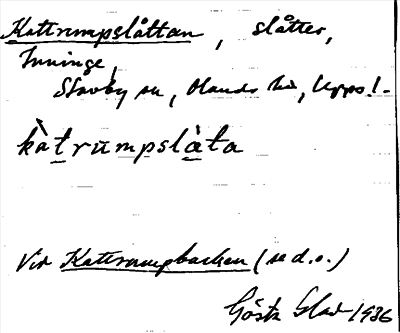 Kattrumpslåttan, slåtter,
Inninge,
Stavby sn, Olands hd, Upps!-
kàtrumpslàta
Vid Kattrumpbacken (se d.o.)
Gösta Glad 1936